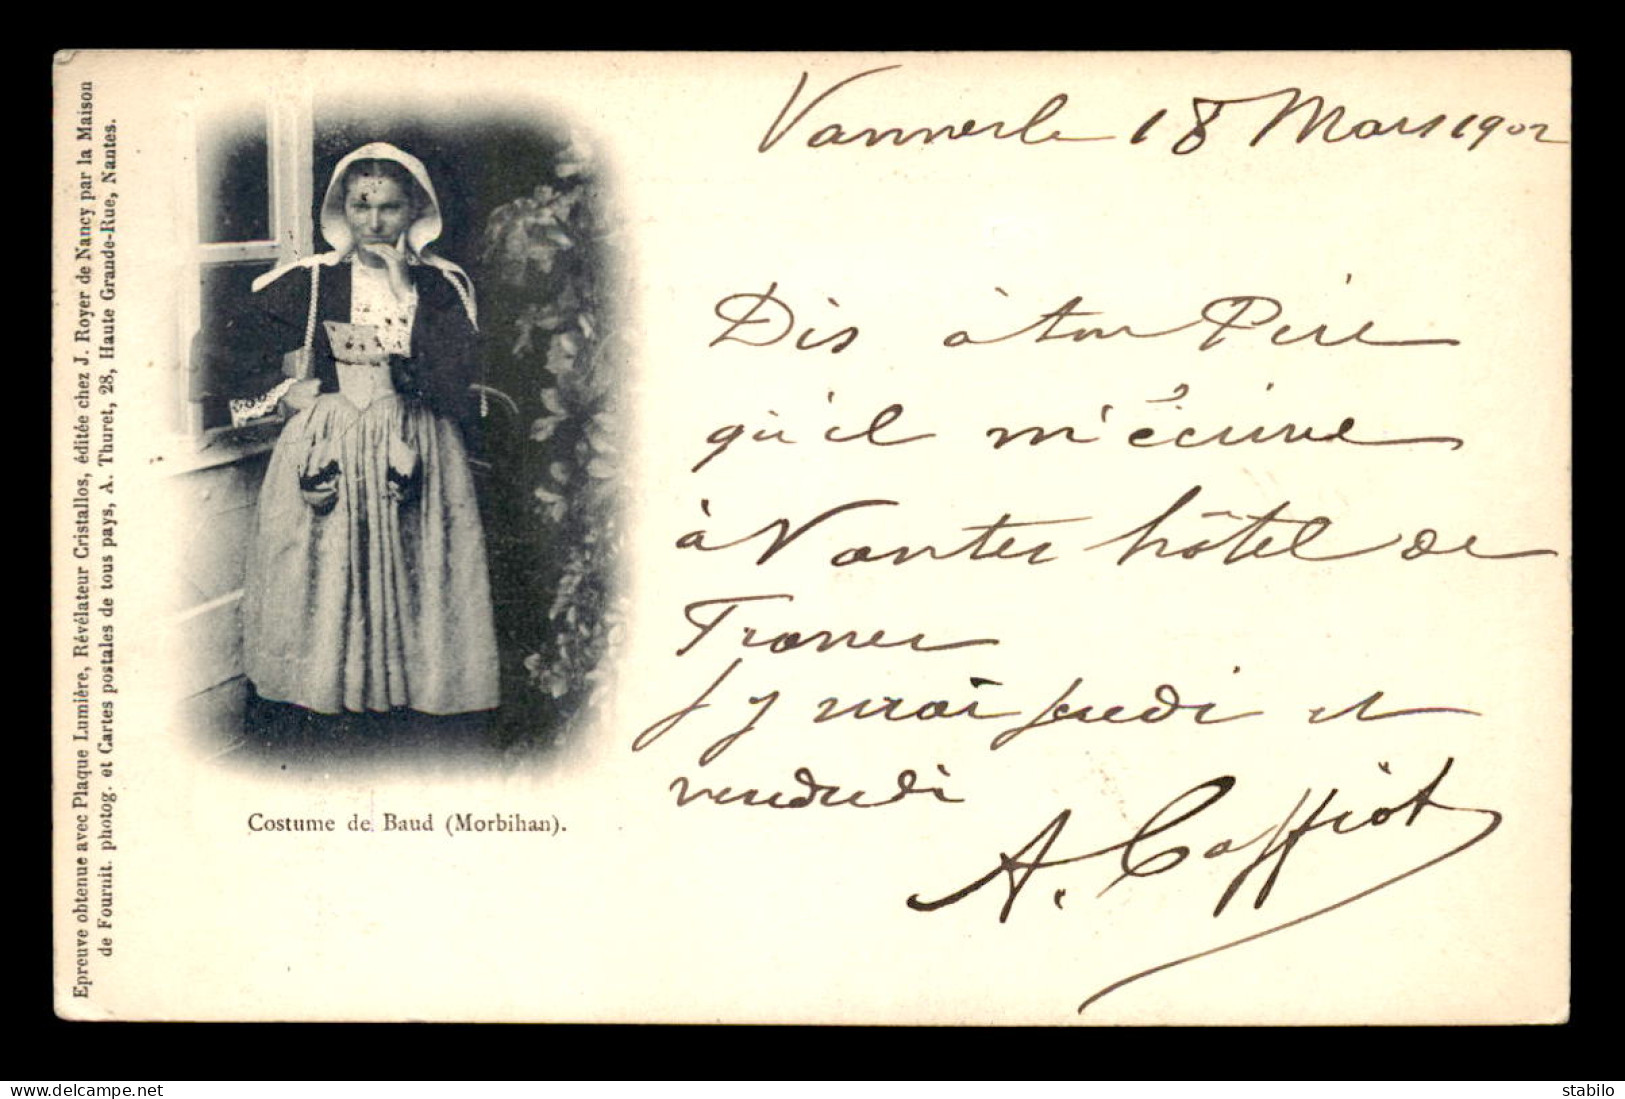 Epreuve obtenue avec Plaque Lumière, Révélateur Cristallos, éditée chez J. Royer de Nancy par la Maison
de Fournit. photog. et Cartes postales de tous pays, A. Thuret, 28, Haute Grande-Rue, Nantes.
Costume de Baud (Morbihan).
Vannes le 18 Mars 1902
Dis à ton Père
qu'il m'écrive
à Nantes hôtel de
France
J'y serai jeudi et
vendredi
A. Caffiot
www.delcampe.net
stabilo